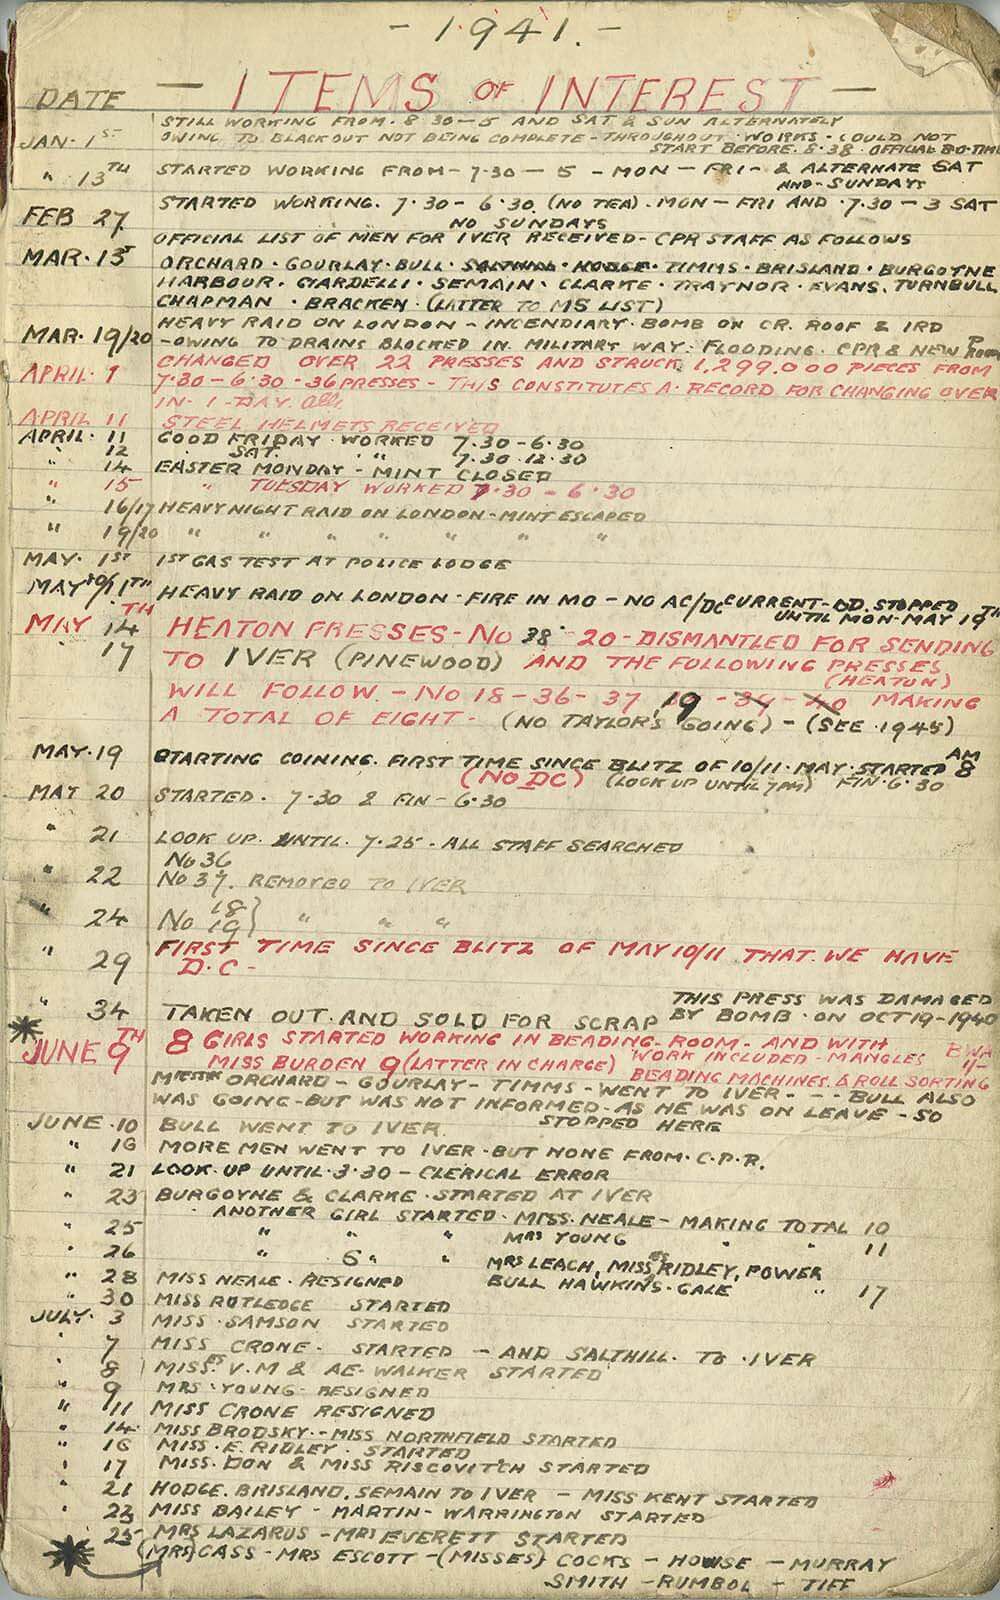 - 1941. -
DATE - ITEMS OF INTEREST -
JAN. 1ST STILL WORKING FROM. 8 30-5 AND SAT & SUN ALTERNATELY
OWING TO BLACKOUT NOT BEING COMPLETE - THROUGHOUT WORKS - COULD NOT
START BEFORE. 8.38. OFFICIAL B.O. TIME
" 13TH STARTED WORKING FROM - 7.30 - 5 - MON - FRI - & ALTERNATE SAT
AND - SUNDAYS
FEB 27 STARTED WORKING. 7.30 - 6.30 (NO TEA). MON - FRI AND .7.30 - 3 SAT
NO SUNDAYS
OFFICIAL LIST OF MEN FOR IVER RECEIVED - CPR STAFF AS FOLLOWS
MAR. 13 ORCHARD. GOURLAY. BULL. SALTHILL. HODGE. TIMMS. BRISLAND. BURGOYNE
HARBOUR. CIARDELLI. SEMAIN. CLARKE. TRAYNOR. EVANS. TURNBULL
CHAPMAN. BRACKEN. (LATTER TO MS LIST)
MAR. 19/20 HEAVY RAID ON LONDON - INCENDIARY. BOMB ON CR. ROOF & IRD
- OWING TO DRAINS BLOCKED IN MILITARY WAY. FLOODING. CPR & NEW P ROOM
APRIL. 9 CHANGED OVER 22 PRESSES AND STRUCK 1,299,000 PIECES FROM
7.30 - 6.30 - 36 PRESSES - THIS CONSTITUTES A. RECORD FOR CHANGING OVER
IN. 1 - DAY.
APRIL 11 STEEL HELMETS RECEIVED
APRIL. 11 GOOD FRIDAY. WORKED 7.30 - 6.30
" 12 SAT. " " 7.30. 12.30
" 14 EASTER MONDAY - MINT CLOSED
" 15 " TUESDAY WORKED 7.30 - 6.30
" 16/17 HEAVY NIGHT RAID ON LONDON - MINT ESCAPED
" 19/20 " " " " " " "
MAY. 1ST 1ST GAS TEST AT POLICE LODGE
MAY 10/11TH HEAVY RAID ON LONDON. FIRE IN MO - NO AC/DC CURRENT - OD. STOPPED
UNTIL MON - MAY 19TH
MAY 14TH HEATON PRESSES - NO 38 20 - DISMANTLED FOR SENDING
" 17 TO IVER (PINEWOOD) AND THE FOLLOWING PRESSES
(HEATON)
WILL FOLLOW - NO 18 - 36 - 37 19 - 34 - 40 MAKING
A TOTAL OF EIGHT - (NO TAYLOR'S GOING) - (SEE. 1945)
MAY. 19 STARTING COINING. FIRST TIME SINCE BLITZ OF 10/11. MAY. STARTED 8 AM
(NO DC) (LOOK UP UNTIL 7 PM) FIN. 6.30
MAY 20 STARTED. 7.30 & FIN - 6.30
" 21 LOOK UP. UNTIL. 7.25 - ALL STAFF SEARCHED
No 36
" 22 No 37. REMOVED TO IVER
" 24 No 18 19 } " " "
" 29 FIRST TIME SINCE BLITZ OF MAY 10/11 THAT WE HAVE
D.C -
" 34 TAKEN OUT. AND SOLD FOR SCRAP THIS PRESS WAS DAMAGED
BY BOMB. ON OCT 19 - 1940
JUNE 9TH 8 GIRLS STARTED WORKING IN BEADING - ROOM - AND WITH
MISS BURDEN 9 (LATTER IN CHARGE) WORK INCLUDED - MANGLES
BEADING MACHINES. & ROLL SORTING
ORCHARD - GOURLAY - TIMMS - WENT TO IVER - - - BULL ALSO
WAS GOING - BUT WAS NOT INFORMED - AS HE WAS ON LEAVE - SO
STOPPED HERE
JUNE. 10 BULL WENT TO IVER
" 16 MORE MEN WENT TO IVER. BUT NONE FROM. C.P.R.
" 21 LOOK UP UNTIL. 3.30 - CLERICAL ERROR
" 23 BURGOYNE & CLARKE. STARTED AT IVER
ANOTHER GIRL STARTED. MISS. NEALE - MAKING TOTAL 10
" 25 " " " MRS YOUNG " " 11
" 26 " 6 " " MRS LEACH, MISSES RIDLEY, POWER
" 28 MISS NEALE. RESIGNED BULL HAWKINS. GALE " 17
" 30 MISS RUTLEDGE STARTED
JULY. 3 MISS. SAMSON STARTED
" 7 MISS CRONE. STARTED - AND SALTHILL. TO. IVER
" 8 MISSES V.M & AE. WALKER STARTED
" 9 MRS. YOUNG RESIGNED
" 11 MISS CRONE RESIGNED
" 14 MISS BRODSKY. - MISS NORTHFIELD STARTED
" 16 MISS. E. RIDLEY. STARTED
" 17 MISS. DON & MISS RISCOVITCH STARTED
" 21 HODGE. BRISLAND, SEMAIN TO IVER - MISS KENT STARTED
" 23 MISS BAILEY - MARTIN - WARRINGTON STARTED
" 25 MRS LAZARUS - MRS EVERETT STARTED
(MRS) CASS - MRS ESCOTT - (MISSES) COCKS - HOWSE - MURRAY
SMITH - RUMBOL - TIFF